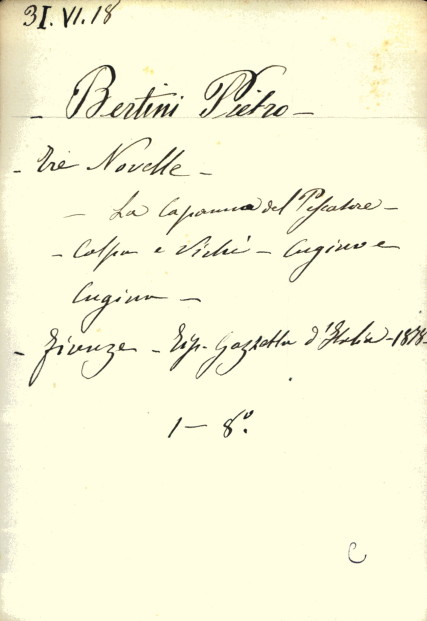 31.VI.18
- Bertini Pietro -
- Tre Novelle -
- La Capanna del Pescatore -
- Colpa e - Cugino e
Cugina -
- Firenze - Tip. Gazzetta d'Italia - 1878 -
1 - 8º.
C